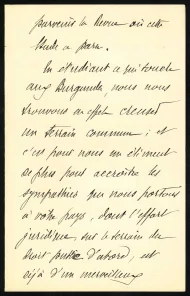 parvenir la Revue où cette
étude a paru.
En étudiant ce qui touche
aux Burgundes, nous nous
trouvons en effet creuser
un terrain commun ; et
c'est pour nous un élément
de plus pour accroître les
sympathies que nous portons
à votre pays, dont l'effort
juridique sur le terrain du
droit d'abord, est
déjà d'un merveilleux